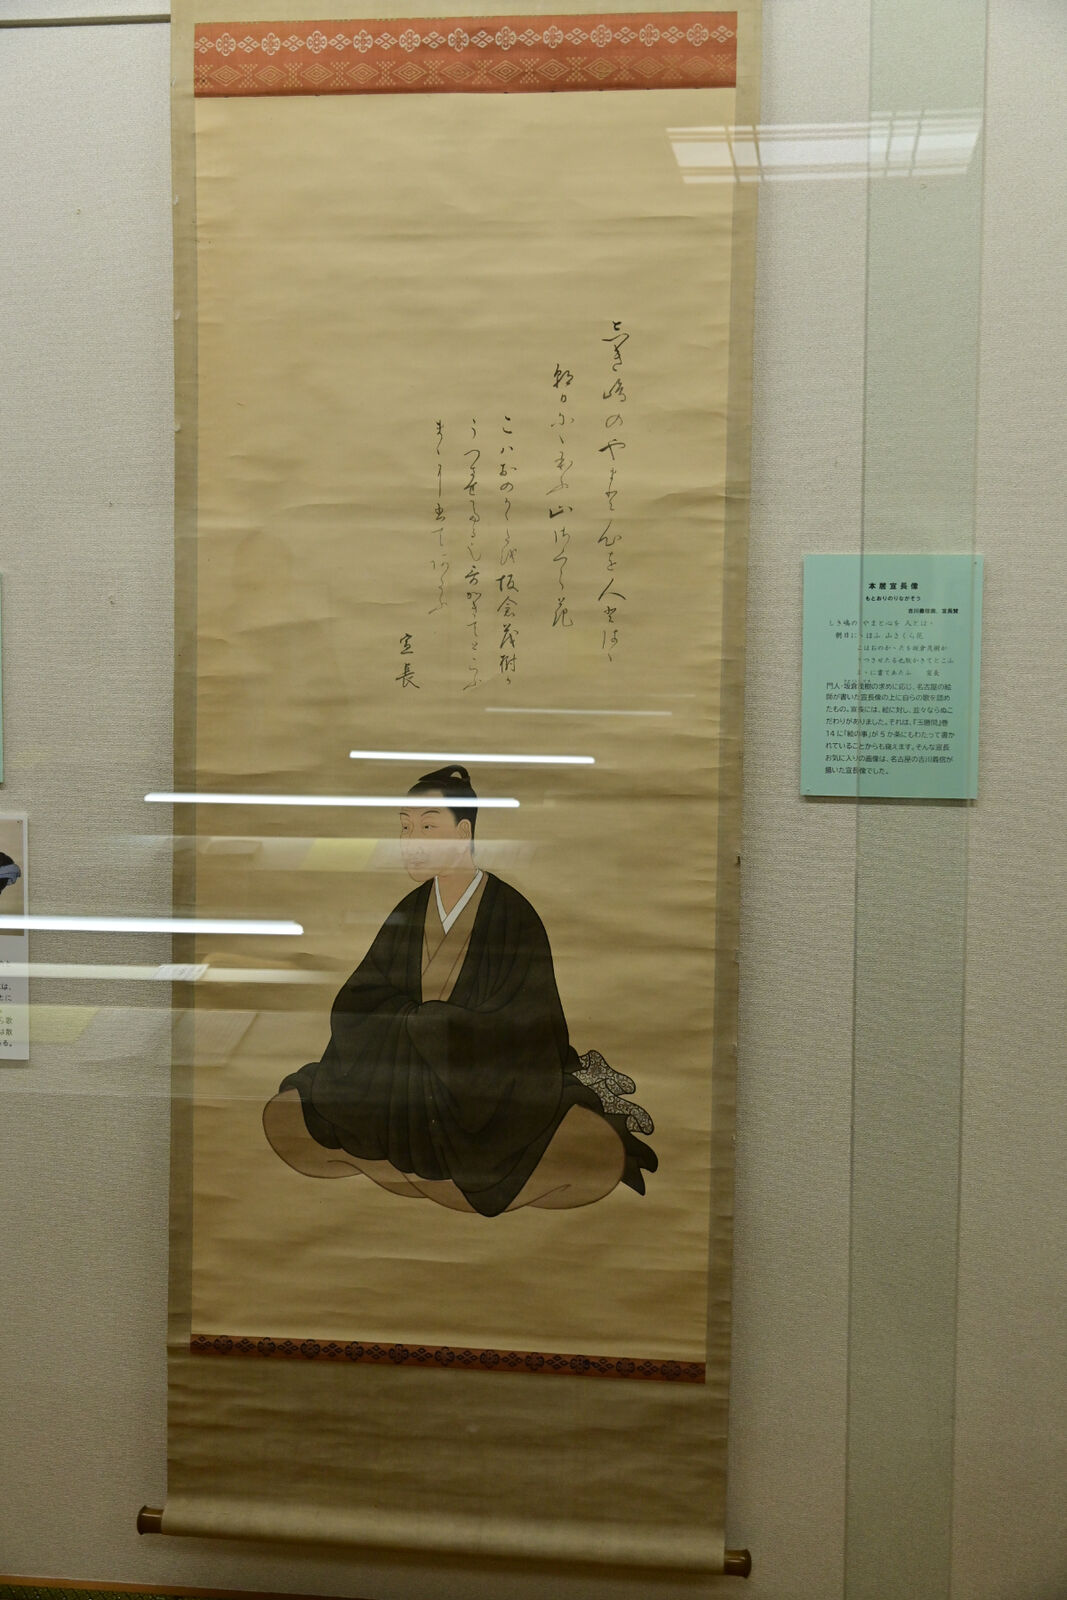 しき嶋のやまと心を人とはゝ
朝日にゝほふ山さくら花
こハおのかゝたを坂倉茂樹か
うつさせたる也歌かきてとこふ
まゝに書てあたふ
宣長
本居宣長像
もとおりのりながぞう
吉川義信画、宣長賛
しき嶋の やまと心を 人とはゝ
朝日にゝほふ 山さくら花
こはおのかゝたを坂倉茂樹か
うつさせたる也歌かきてとこふ
まゝに書てあたふ　宣長
門人・坂倉茂樹の求めに応じ、名古屋の絵
師が書いた宣長像の上に自らの歌を認め
たもの。宣長には、絵に対し、並々ならぬこ
だわりがありました。それは、『玉勝間』巻
14に「絵の事」が5か条にもわたって書か
れていることからも窺えます。そんな宣長
お気に入りの画像は、名古屋の吉川義信が
描いた宣長像でした。